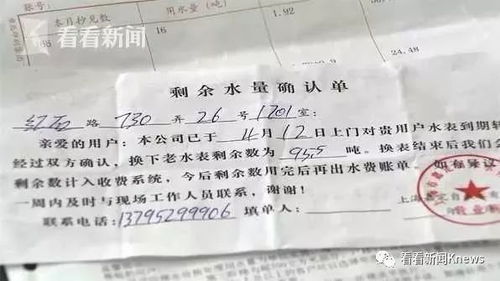 账号:
本月抄见数
用水量(吨)
1.92
看看新闻
16
24.48
剩余水量确认单
路 730 弄 26 号 1701 室:
亲爱的用户:本公司已于 11 月 12 日上门对贵用户水表到期转
经过双方确认,换下老水表剩余数为 955 吨。换表结束后我们会
剩余数计入收费系统,今后剩余数用完后再出水费账单,如有异议
一周内及时与现场工作人员联系,谢谢!
联系电话:13795299906 填单人:
上海
看看新闻Knews